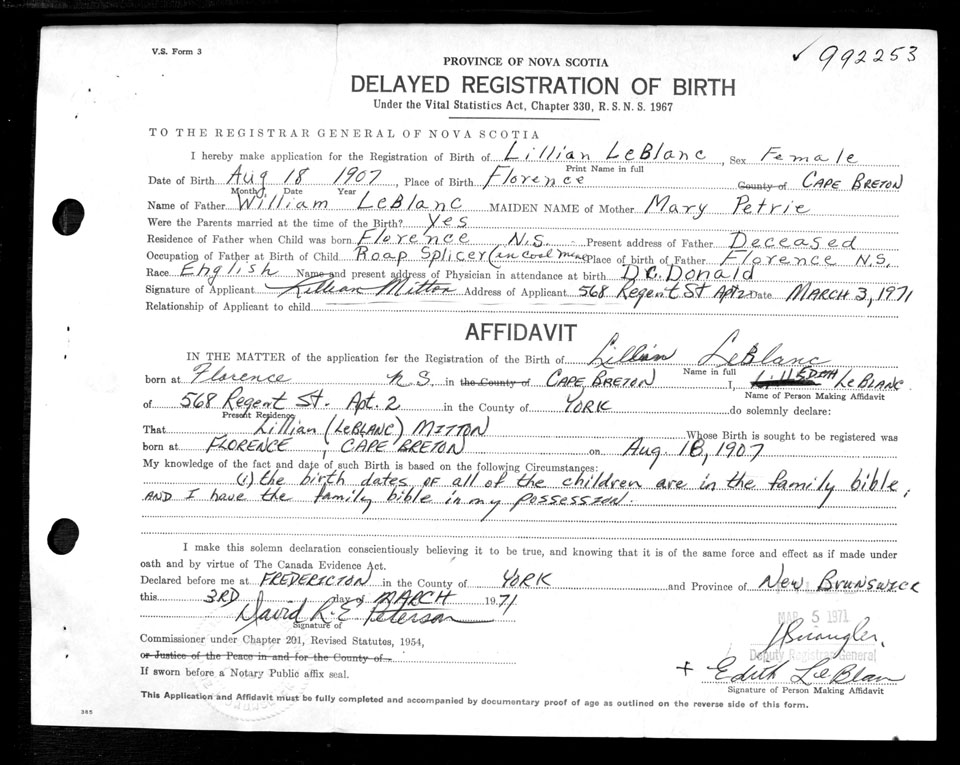 V.S. Form 3
✓ 992253
PROVINCE OF NOVA SCOTIA
DELAYED REGISTRATION OF BIRTH
Under the Vital Statistics Act, Chapter 330, R.S.N.S. 1967
TO THE REGISTRAR GENERAL OF NOVA SCOTIA
I hereby make application for the Registration of Birth of Lillian LeBlanc, Sex Female
Print Name in full
Date of Birth Aug 18 1907, Place of Birth Florence County of CAPE BRETON
Month Date Year
Name of Father William LeBlanc MAIDEN NAME of Mother Mary Petrie
Were the Parents married at the time of the Birth? Yes
Residence of Father when Child was born Florence N.S. Present address of Father Deceased
Occupation of Father at Birth of Child Roap Splicer (in coal mine Place of birth of Father Florence N.S.
Race English Name and present address of Physician in attendance at birth Dr. Donald
Signature of Applicant Lillian Mitton Address of Applicant 568 Regent St Apt 2 Date MARCH 3, 1971
Relationship of Applicant to child
AFFIDAVIT
IN THE MATTER of the application for the Registration of the Birth of Lillian LeBlanc
Name in full
born at Florence N.S. in the County of CAPE BRETON I, EDITH LeBLANC
Name of Person Making Affidavit
of 568 Regent St. Apt. 2 in the County of YORK do solemnly declare:
Present Residence
That Lillian (LeBLANC) MITTON Whose Birth is sought to be registered was
born at FLORENCE, CAPE BRETON on Aug. 18, 1907
My knowledge of the fact and date of such Birth is based on the following Circumstances:
(1) the birth dates OF all of the children are in the family bible,
AND I have the family bible in my possession.
I make this solemn declaration conscientiously believing it to be true, and knowing that it is of the same force and effect as if made under
oath and by virtue of The Canada Evidence Act.
Declared before me at FREDERICTON in the County of YORK and Province of New Brunswick
this 3RD day of MARCH 1971
MAR 5 1971
David R.E. Peterson
Signature of
Commissioner under Chapter 201, Revised Statutes, 1954,
Deputy Registrar General
or Justice of the Peace in and for the County of
If sworn before a Notary Public affix seal.
+ Edith LeBlanc
Signature of Person Making Affidavit
This Application and Affidavit must be fully completed and accompanied by documentary proof of age as outlined on the reverse side of this form.
385